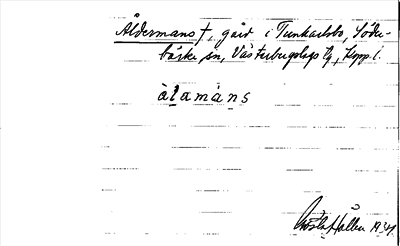 Åldermans †, gård i Tunkarlsbo, Söder-
bärke sn, Västerbergslags tg, Kopp. l.
àlamàns
Gösta Hallen 1941.